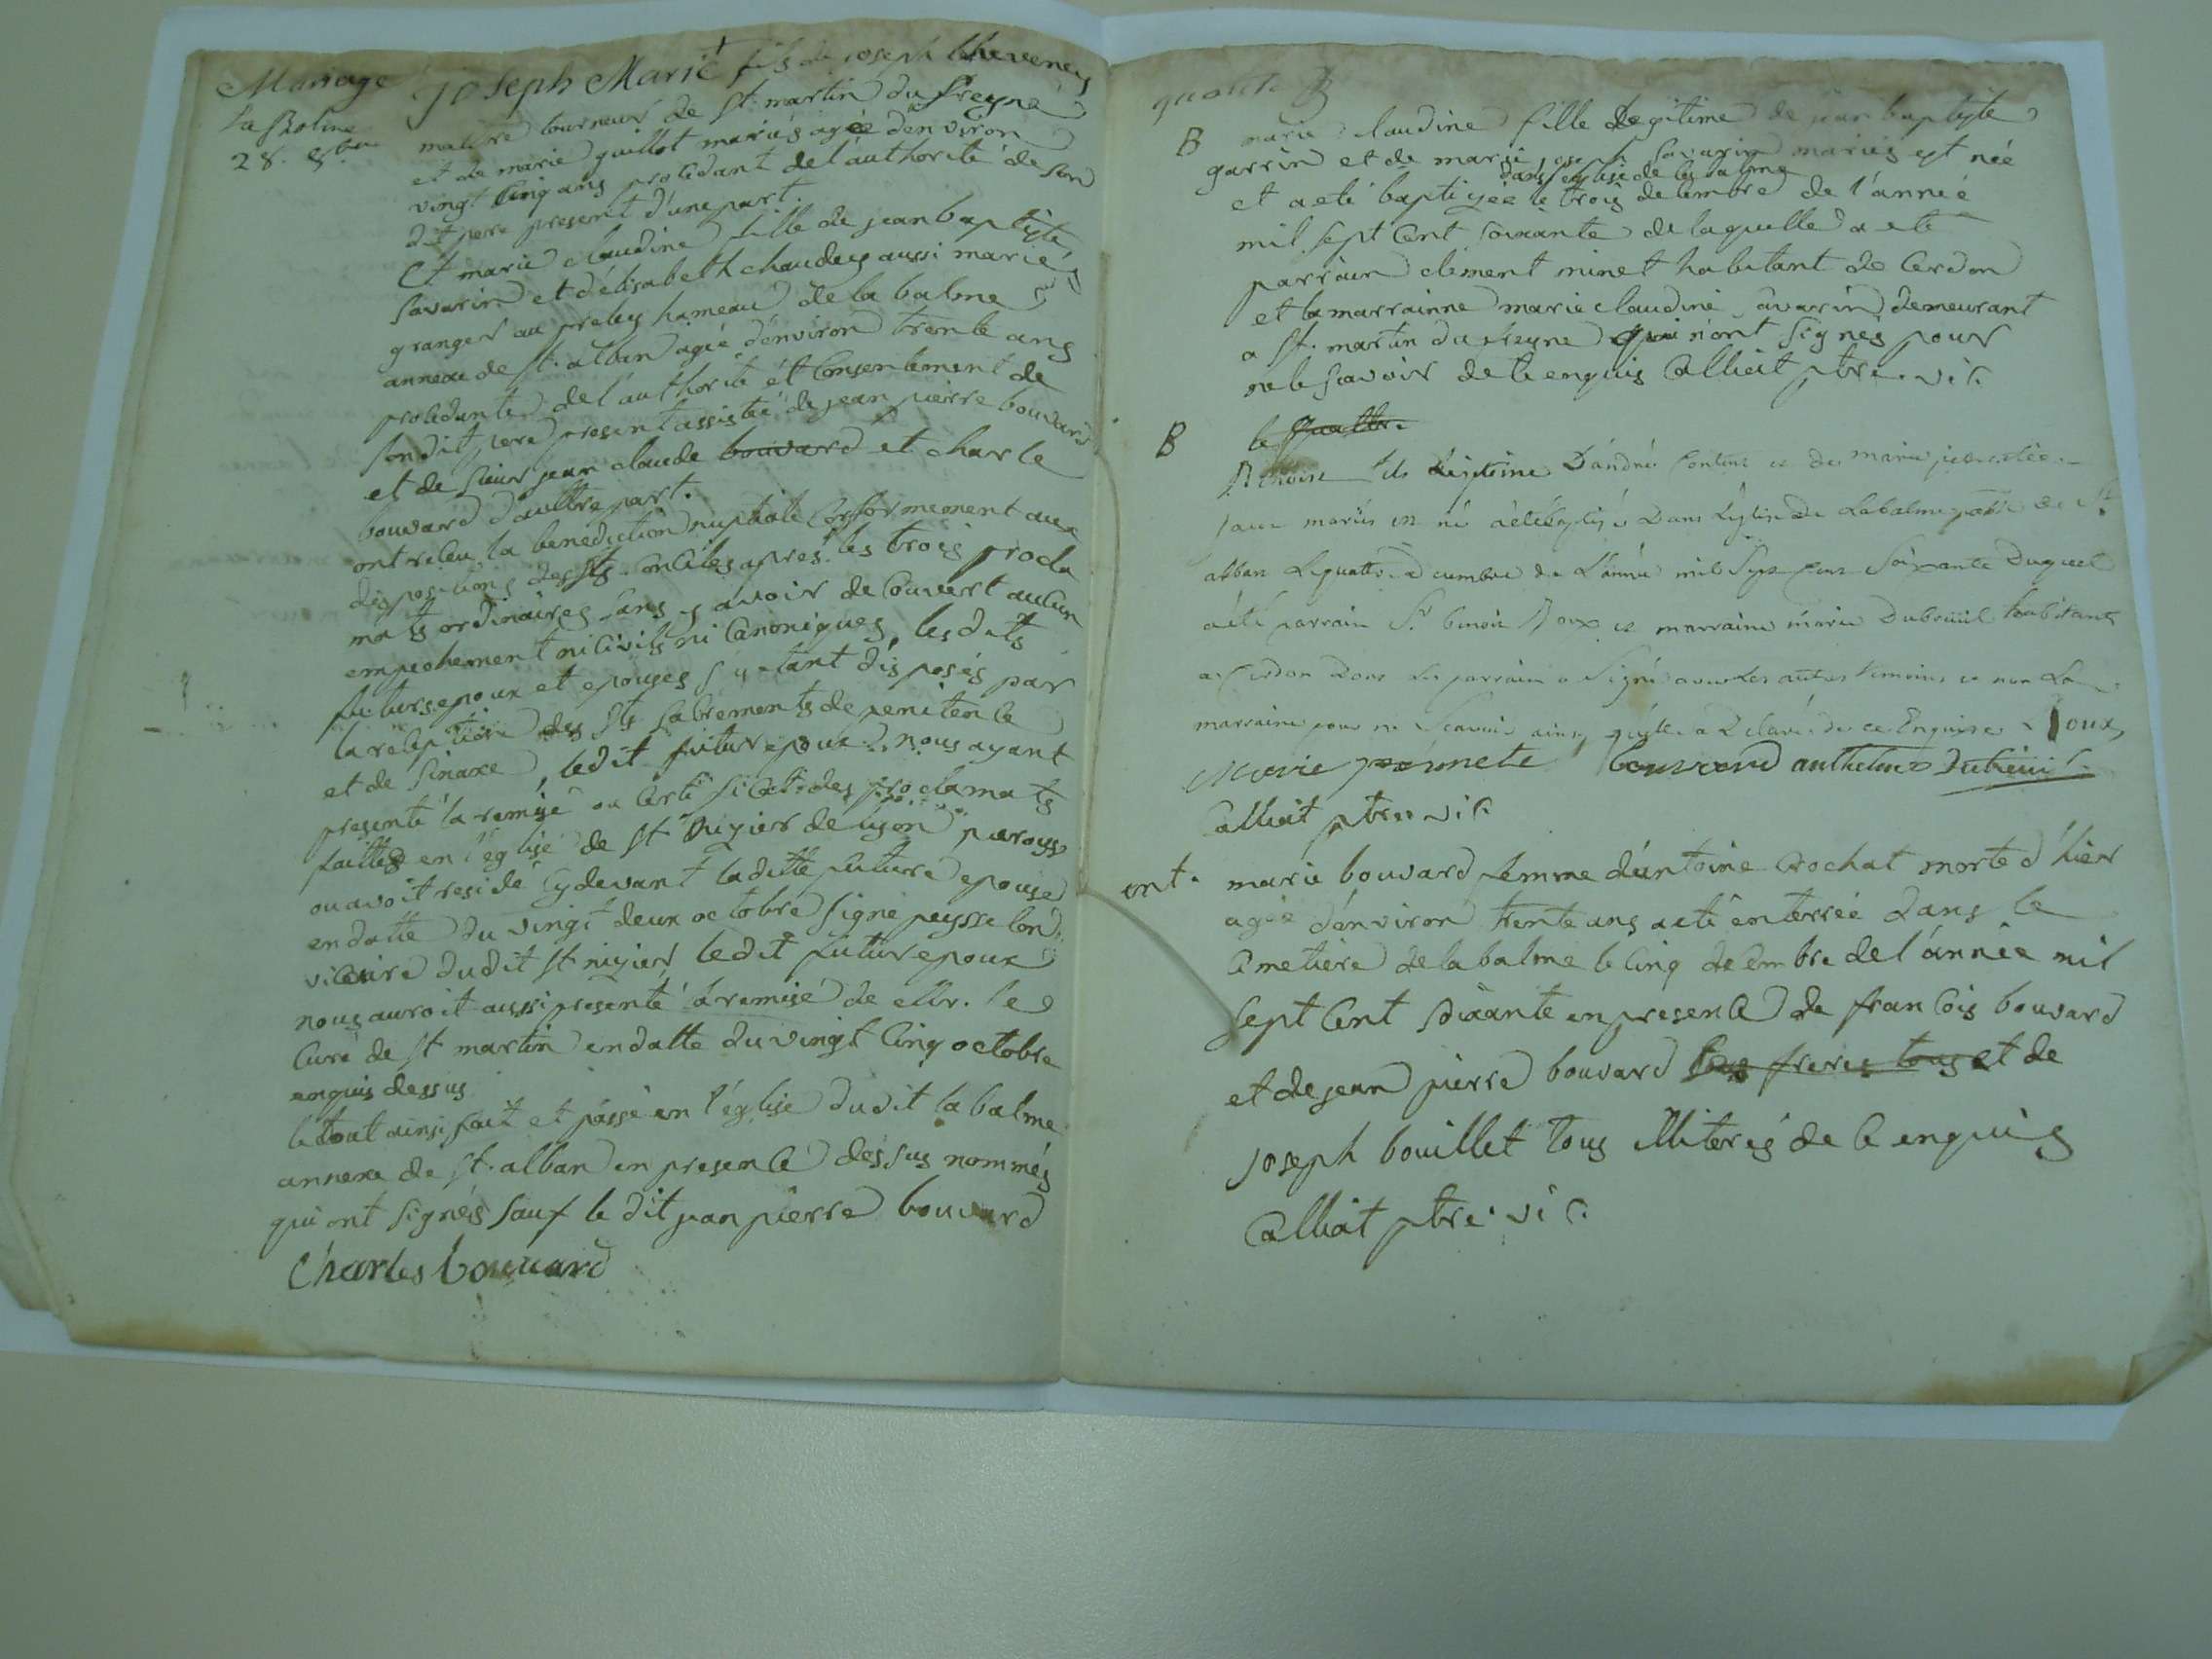 Mariage
La Balme
28. 8bre
Joseph Marie fils de joseph cheveney
maître tourneur de st. martin du freyne
et de marie guillot mariés agée d'environ
vingt cinq ans procedant de l'authorité de son
dit pere present d'une part.
Et marie claudine fille de jean baptiste
savarin et d'élisabeth chaudey aussi mariés
granger au preley hameau de la balme
annexe de st. alban agée d'environ trente ans
procedante de l'authorité et consentement de
son dit pere present assistée de jean pierre bouvard
et de sieur jean claude bouvard et charle
bouvard d'aultre part.
ont receu la benediction nuptiale conformement aux
dispositions des sts. conciles apres les trois procla
mats ordinaires sans y avoir decouvert aucun
empechement ni civils ni canoniques, les dits
futurs epoux et epouses s'y etant disposés par
la reception des sts sacrements de penitence
et de sinaxe, ledit futur epoux nous ayant
presenté la remise ou certificat des proclamats
faittes en l'église de st nizier de lyon paroysse
ou avoit residé cy devant laditte future epouse
en datte du vingt deux octobre signé peysselon
vicaire dudit st nizier ledit futur epoux
nous auroit aussi presenté la remise de Mr. le
curé de st martin en datte du vingt cinq octobre
enquis dessus
le tout ainsi fait et passé en l'église dudit la balme
annexe de st. alban en presence dessus nommés
qui ont signés sauf le dit jean pierre bouvard
Charles bouvard
B
marie claudine fille legitime de jean baptiste
garrin et de marie joseph savarin mariés est née
dans l'eglise de la balme
et a eté baptizée le trois decembre de l'année
mil sept cent soixante de laquelle a eté
parrain clement minet habitant de cerdon
et la marrainne marie claudine savarin demeurant
a st. martin du freyne qui n'ont signés pour
ne le scavoir de ce enquis Calliat ptre. vic.
B
le quattre
Benoist fils legitime D'andré et de marie
mariés est né a eté baptisé Dans L'église De Labalme de St.
alban Le quattre decembre de L'année mil Sept cens Soixante Duquel
a eté parrain Sr. benoit Roux et marraine marie Dubreüil habitants
a Cerdon Dont Le parrain a Signé avec Les autres temoins et non La
marraine pour ne Scavoir ainsy qu'elle a Declaré de ce Enquise. Roux
Marie bouvard anthelme Dubreüil
Calliat ptre vic
ent.
marie bouvard femme d'antoine Crochat morte d'hier
agée d'environ trente ans a eté enterrée dans le
cimetiére de la balme le cinq decembre de l'année mil
sept cent soixante en presence de francois bouvard
et de jean pierre bouvard ses freres tous et de
joseph bouillet tous illiterés de ce enquis
Calliat ptre. vic.